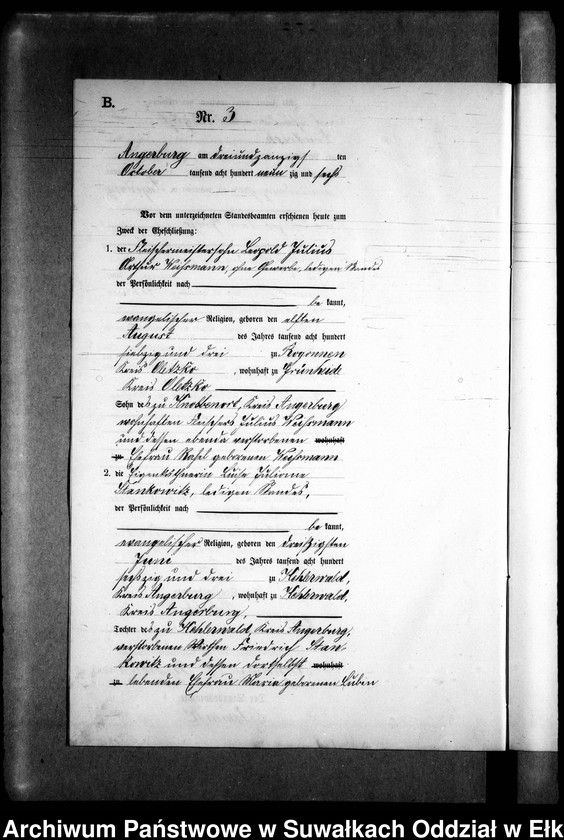 B.
Nr. 3
Angerburg am dreiundzwanzigsten
October tausend acht hundert neunzig und sechs
Vor dem unterzeichneten Standesbeamten erschienen heute zum
Zweck der Eheschließung:
1. der Fleischermeistersohn Leopold Julius
Arthur Weihsmann, ohne Gewerbe, ledigen Standes
der Persönlichkeit nach
be kannt,
evangelischer Religion, geboren den elften
August des Jahres tausend acht hundert
siebzig und drei zu
Kreis Oletzko, wohnhaft zu Grünheide
Kreis Oletzko
Sohn des zu Knobbenort, Kreis Angerburg
wohnhaften Fleischers Julius Weihsmann
und dessen ebenda verstorbenen wohnhaft
zu Ehefrau geborenen Weihsmann
2. die Luise Julianne
Stankowitz, ledigen Standes,
der Persönlichkeit nach
be kannt,
evangelischer Religion, geboren den dreißigsten
Juni des Jahres tausend acht hundert
sechszig und drei zu Hesslerwald,
Kreis Angerburg, wohnhaft zu Hesslerwald,
Kreis Angerburg,
Tochter des zu Hesslerwald, Kreis Angerburg,
verstorbenen Wirthen Friedrich Stan-
kowitz und dessen dortselbst wohnhaft
zu lebenden Ehefrau Maria geborenen Lubin
Archiwum Państwowe w Suwałkach Oddział w Ełk